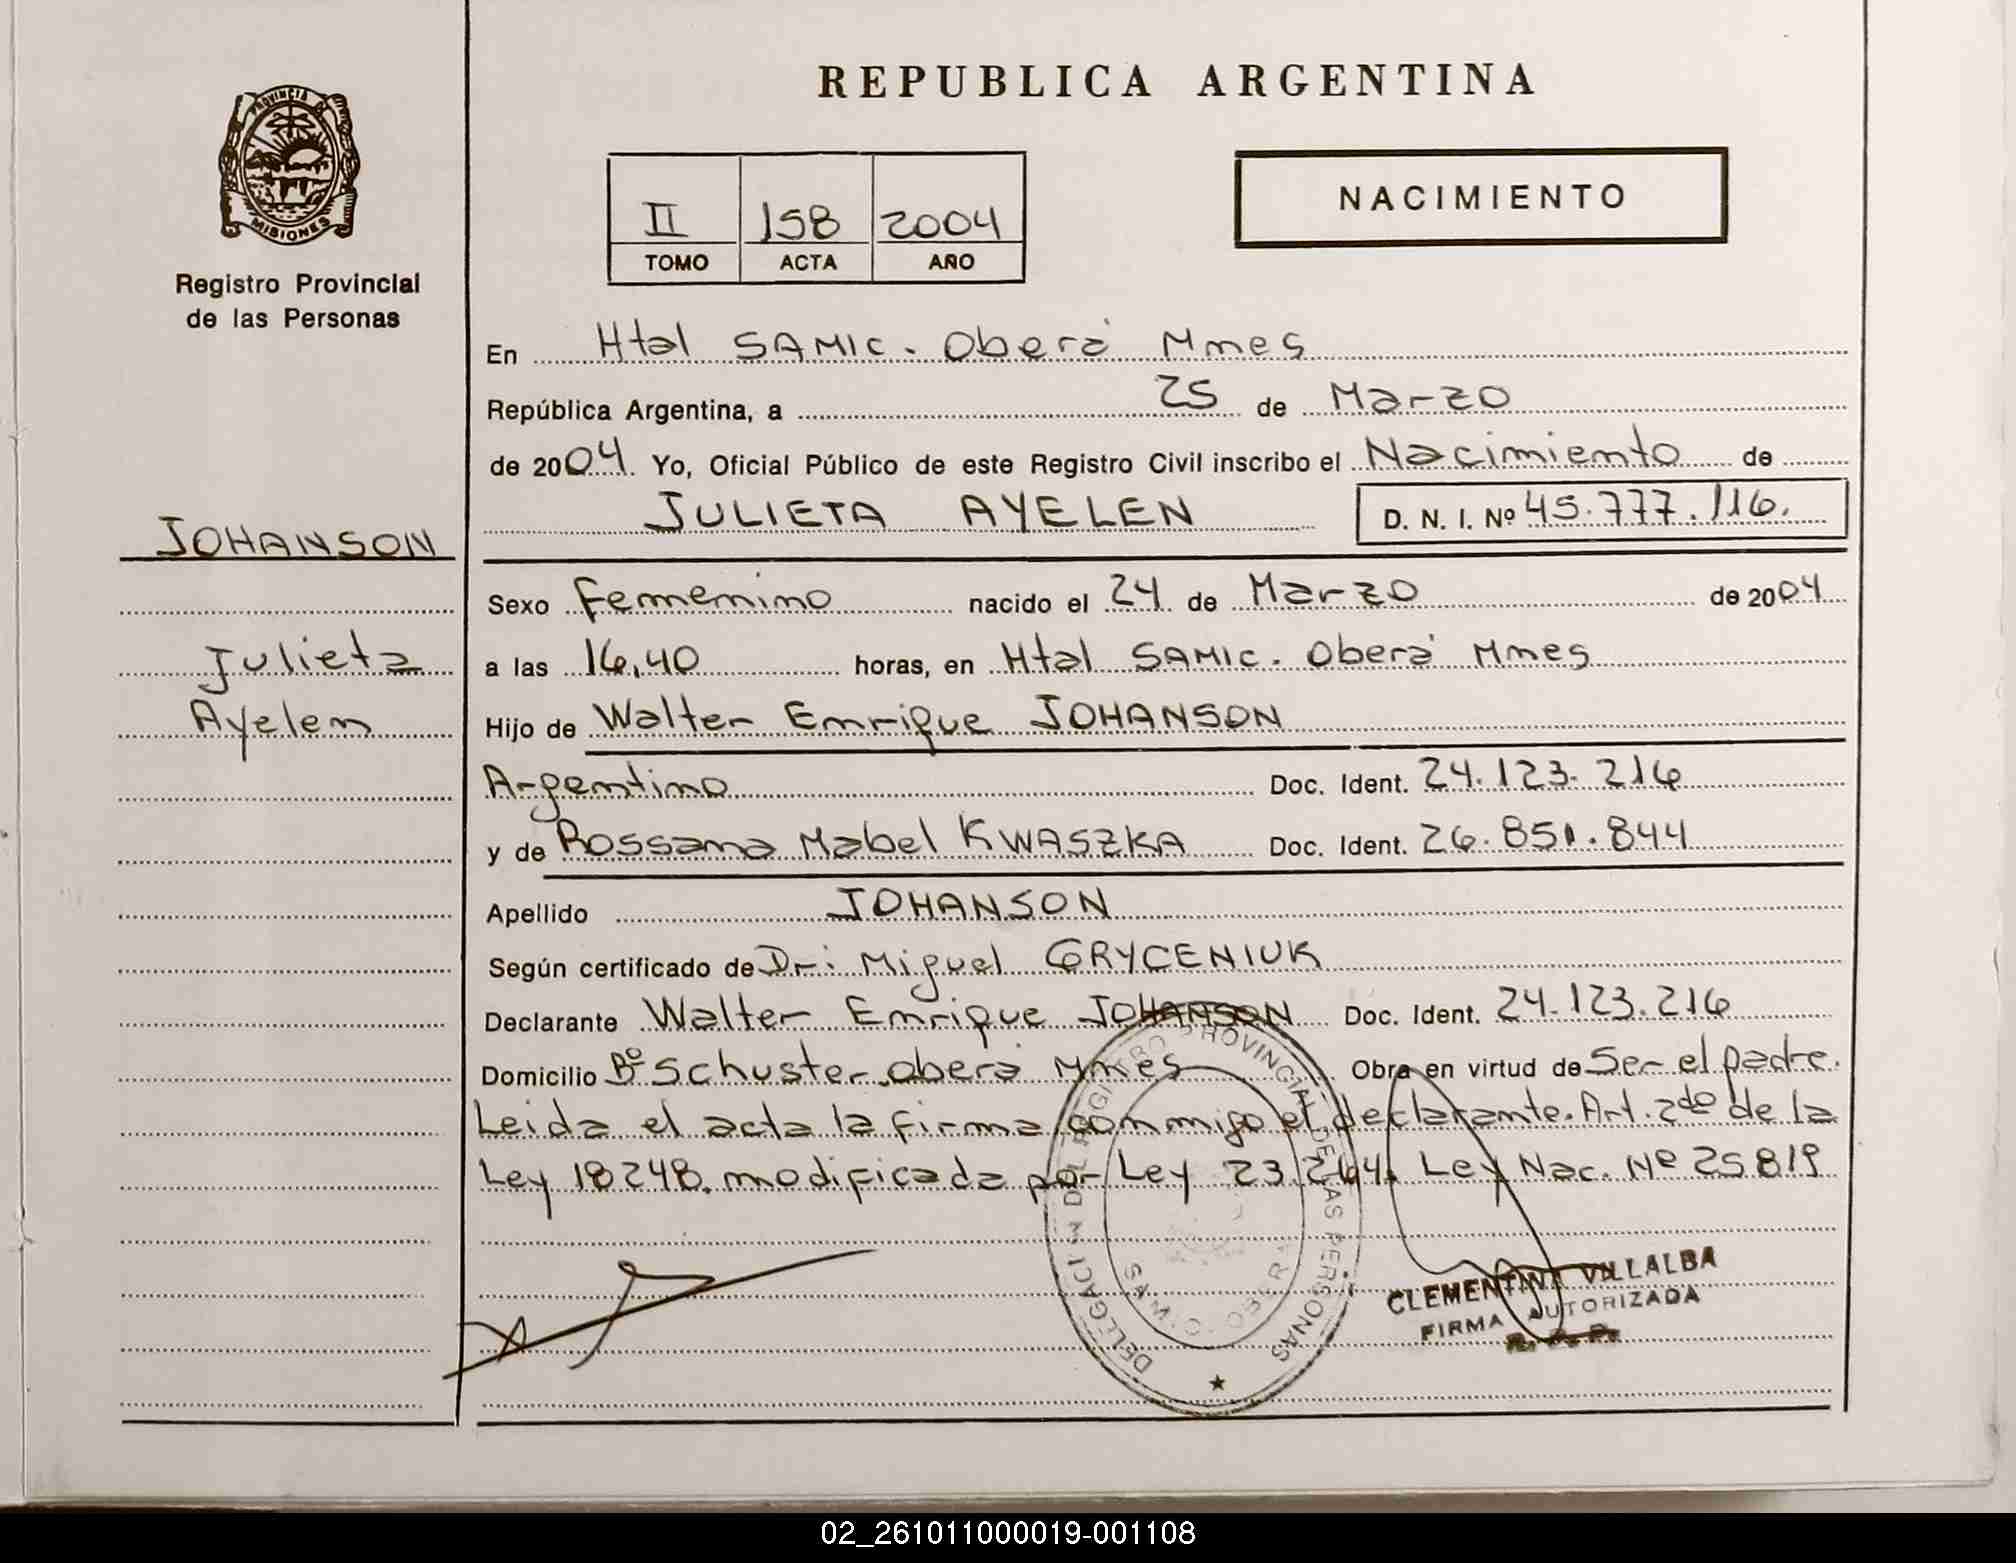 PROVINCIA DE
MISIONES
Registro Provincial
de las Personas
JOHANSON
Julieta
Ayelen
REPUBLICA ARGENTINA
II 158 2004
TOMO ACTA AÑO
NACIMIENTO
En Htal SAMIC. Oberá Mnes
República Argentina, a 25 de Marzo
de 2004. Yo, Oficial Público de este Registro Civil inscribo el Nacimiento de
JULIETA AYELEN D. N. I. Nº 45.777.116.
Sexo Femenino nacido el 24 de Marzo de 2004
a las 16,40 horas, en Htal SAMIC. Oberá Mnes
Hijo de Walter Enrique JOHANSON
Argentino Doc. Ident. 24.123.216
y de Rossana Mabel KWASZKA Doc. Ident. 26.851.844
Apellido JOHANSON
Según certificado de Dr: Miguel GRYCENIUK
Declarante Walter Enrique JOHANSON Doc. Ident. 24.123.216
Domicilio Bº Schuster. Oberá Mnes Obra en virtud de Ser el padre.
Leida el acta la firma conmigo el declarante. Art. 2do de la
Ley 18248. modificada por Ley 23.264. Ley Nac. Nº 25.819
DELEGACION DEL REGISTRO PROVINCIAL DE LAS PERSONAS
OBERA
CLEMENTINA VILLALBA
FIRMA AUTORIZADA
R. P. P.
02_261011000019-001108